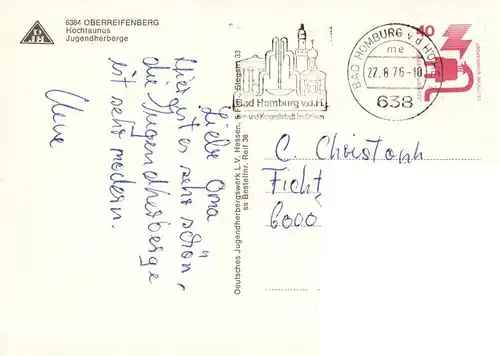 6384 OBERREIFENBERG
Hochtaunus
Jugendherberge
DJH
Liebe Oma
Hier ist es sehr schön,
die Jugendherberge
ist sehr modern.
Uwe
Deutsches Jugendherbergswerk, L.V. Hessen, 6 Stegstr. 33
ss Bestellnr. Reif 38
Bad Homburg v.d.H.
und Kongreßstadt im Grünen
BAD HOMBURG v d HÖHE
me
22.8.76-10
638
40
DEUTSCHE BUNDESPOST
C. Christoph
Ficht
6000